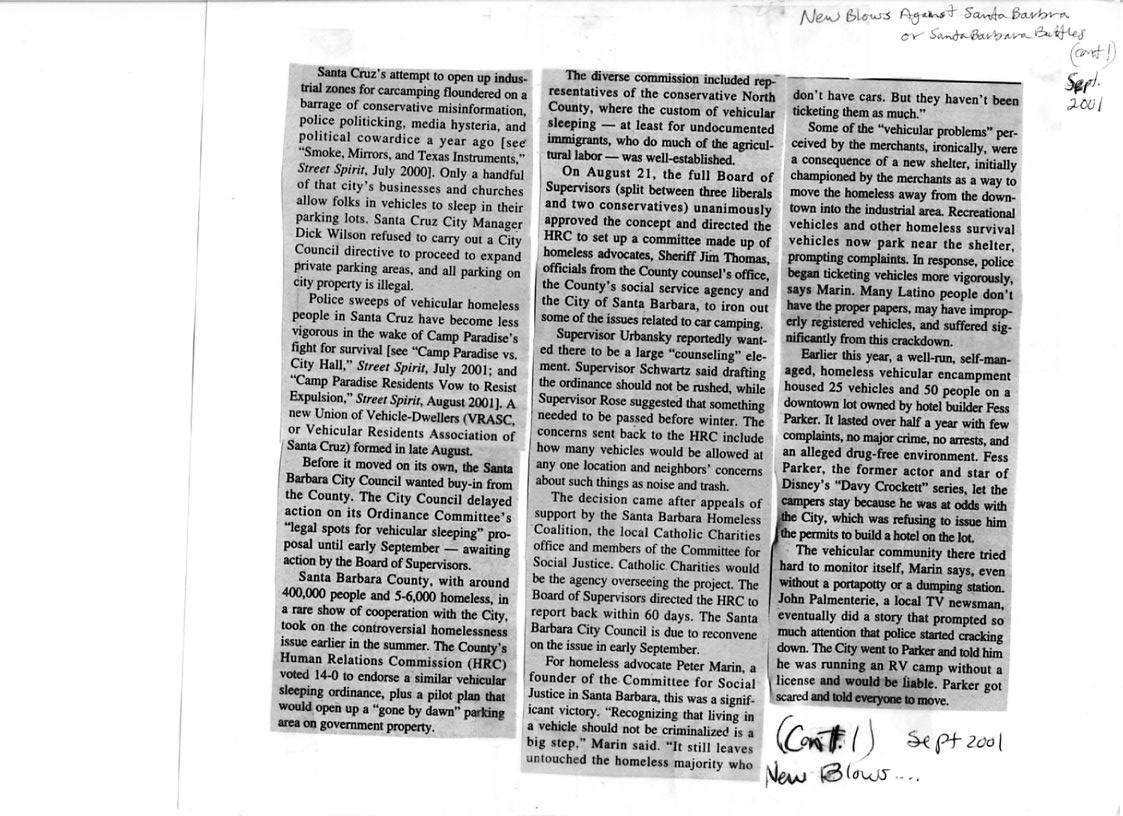 New Blows Against Santa Barbra
or Santa Barbara Battles
(cont!)
Sept.
2001
Santa Cruz's attempt to open up indus-
trial zones for carcamping floundered on a
barrage of conservative misinformation,
police politicking, media hysteria, and
political cowardice a year ago [see
"Smoke, Mirrors, and Texas Instruments,"
Street Spirit, July 2000]. Only a handful
of that city's businesses and churches
allow folks in vehicles to sleep in their
parking lots. Santa Cruz City Manager
Dick Wilson refused to carry out a City
Council directive to proceed to expand
private parking areas, and all parking on
city property is illegal.
Police sweeps of vehicular homeless
people in Santa Cruz have become less
vigorous in the wake of Camp Paradise's
fight for survival [see "Camp Paradise vs.
City Hall," Street Spirit, July 2001; and
"Camp Paradise Residents Vow to Resist
Expulsion," Street Spirit, August 2001]. A
new Union of Vehicle-Dwellers (VRASC,
or Vehicular Residents Association of
Santa Cruz) formed in late August.
Before it moved on its own, the Santa
Barbara City Council wanted buy-in from
the County. The City Council delayed
action on its Ordinance Committee's
"legal spots for vehicular sleeping" pro-
posal until early September — awaiting
action by the Board of Supervisors.
Santa Barbara County, with around
400,000 people and 5-6,000 homeless, in
a rare show of cooperation with the City,
took on the controversial homelessness
issue earlier in the summer. The County's
Human Relations Commission (HRC)
voted 14-0 to endorse a similar vehicular
sleeping ordinance, plus a pilot plan that
would open up a "gone by dawn" parking
area on government property.
The diverse commission included rep-
resentatives of the conservative North
County, where the custom of vehicular
sleeping — at least for undocumented
immigrants, who do much of the agricul-
tural labor — was well-established.
On August 21, the full Board of
Supervisors (split between three liberals
and two conservatives) unanimously
approved the concept and directed the
HRC to set up a committee made up of
homeless advocates, Sheriff Jim Thomas,
officials from the County counsel's office,
the County's social service agency and
the City of Santa Barbara, to iron out
some of the issues related to car camping.
Supervisor Urbansky reportedly want-
ed there to be a large "counseling" ele-
ment. Supervisor Schwartz said drafting
the ordinance should not be rushed, while
Supervisor Rose suggested that something
needed to be passed before winter. The
concerns sent back to the HRC include
how many vehicles would be allowed at
any one location and neighbors' concerns
about such things as noise and trash.
The decision came after appeals of
support by the Santa Barbara Homeless
Coalition, the local Catholic Charities
office and members of the Committee for
Social Justice. Catholic Charities would
be the agency overseeing the project. The
Board of Supervisors directed the HRC to
report back within 60 days. The Santa
Barbara City Council is due to reconvene
on the issue in early September.
For homeless advocate Peter Marin, a
founder of the Committee for Social
Justice in Santa Barbara, this was a signif-
icant victory. "Recognizing that living in
a vehicle should not be criminalized is a
big step," Marin said. "It still leaves
untouched the homeless majority who
don't have cars. But they haven't been
ticketing them as much."
Some of the "vehicular problems" per-
ceived by the merchants, ironically, were
a consequence of a new shelter, initially
championed by the merchants as a way to
move the homeless away from the down-
town into the industrial area. Recreational
vehicles and other homeless survival
vehicles now park near the shelter,
prompting complaints. In response, police
began ticketing vehicles more vigorously,
says Marin. Many Latino people don't
have the proper papers, may have improp-
erly registered vehicles, and suffered sig-
nificantly from this crackdown.
Earlier this year, a well-run, self-man-
aged, homeless vehicular encampment
housed 25 vehicles and 50 people on a
downtown lot owned by hotel builder Fess
Parker. It lasted over half a year with few
complaints, no major crime, no arrests, and
an alleged drug-free environment. Fess
Parker, the former actor and star of
Disney's "Davy Crockett" series, let the
campers stay because he was at odds with
the City, which was refusing to issue him
the permits to build a hotel on the lot.
The vehicular community there tried
hard to monitor itself, Marin says, even
without a portapotty or a dumping station.
John Palmenterie, a local TV newsman,
eventually did a story that prompted so
much attention that police started cracking
down. The City went to Parker and told him
he was running an RV camp without a
license and would be liable. Parker got
scared and told everyone to move.
(Cont.!) Sept 2001
New Blows....